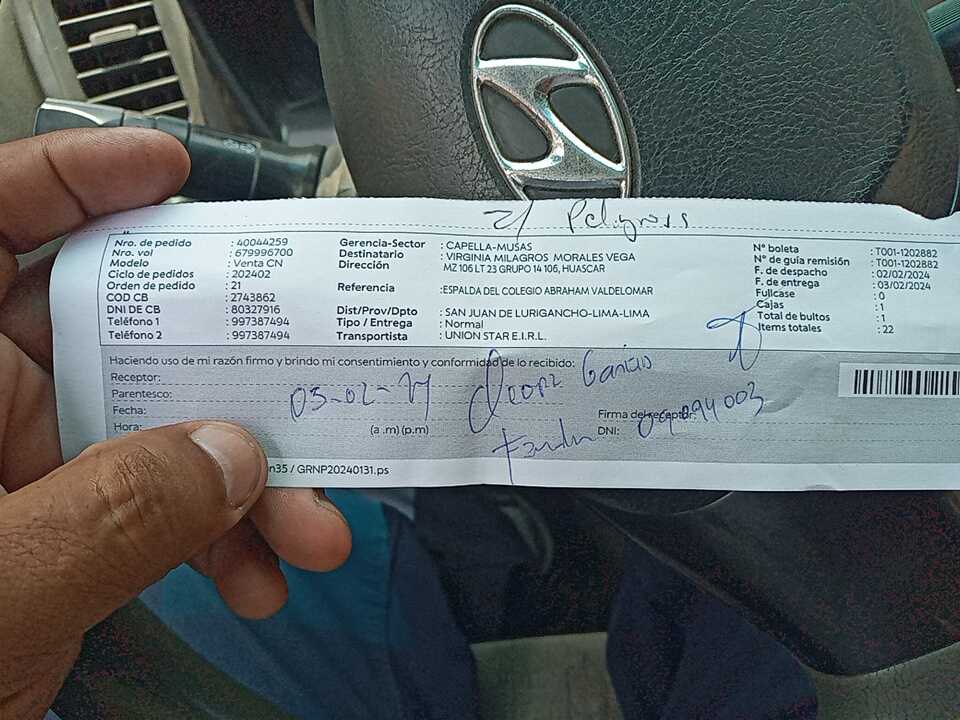 Peligross
Nro. de pedido : 40044259
Nro. vol : 679996700
Modelo : Venta CN
Ciclo de pedidos : 202402
Orden de pedido : 21
COD CB : 2743862
DNI DE CB : 80327916
Teléfono 1 : 997387494
Teléfono 2 : 997387494
Gerencia-Sector : CAPELLA-MUSAS
Destinatario : VIRGINIA MILAGROS MORALES VEGA
Dirección MZ 106 LT 23 GRUPO 14 106, HUASCAR
Referencia :ESPALDA DEL COLEGIO ABRAHAM VALDELOMAR
Dist/Prov/Dpto : SAN JUAN DE LURIGANCHO-LIMA-LIMA
Tipo / Entrega : Normal
Transportista : UNION STAR E.I.R.L.
N° boleta : T001-1202882
N° de guía remisión : T001-1202882
F. de despacho : 02/02/2024
F. de entrega : 03/02/2024
Fullcase : 0
Cajas : 1
Total de bultos : 1
Items totales : 22
Haciendo uso de mi razón firmo y brindo mi consentimiento y conformidad de lo recibido:
Receptor:
Parentesco:
Fecha:
Hora: (a .m) (p.m)
Firma del receptor:
DNI:
n35 / GRNP20240131.ps